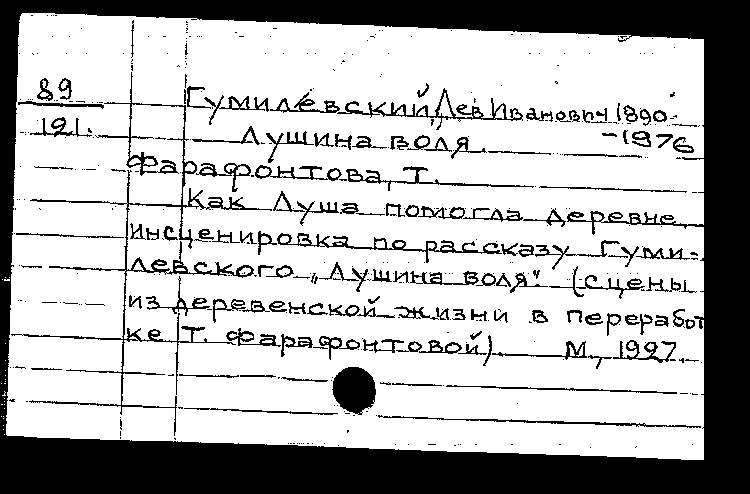 89
121.
Гумилевский, Лев Иванович 1890-
-1976
„Лушина воля.
Фарафонтова, Т.
Как Луша помогла деревне,
инсценировка по рассказу Гуми-
левского „Лушина воля". (сцены
из деревенской жизни в переработ
ке Т. Фарафонтовой). М., 1927.